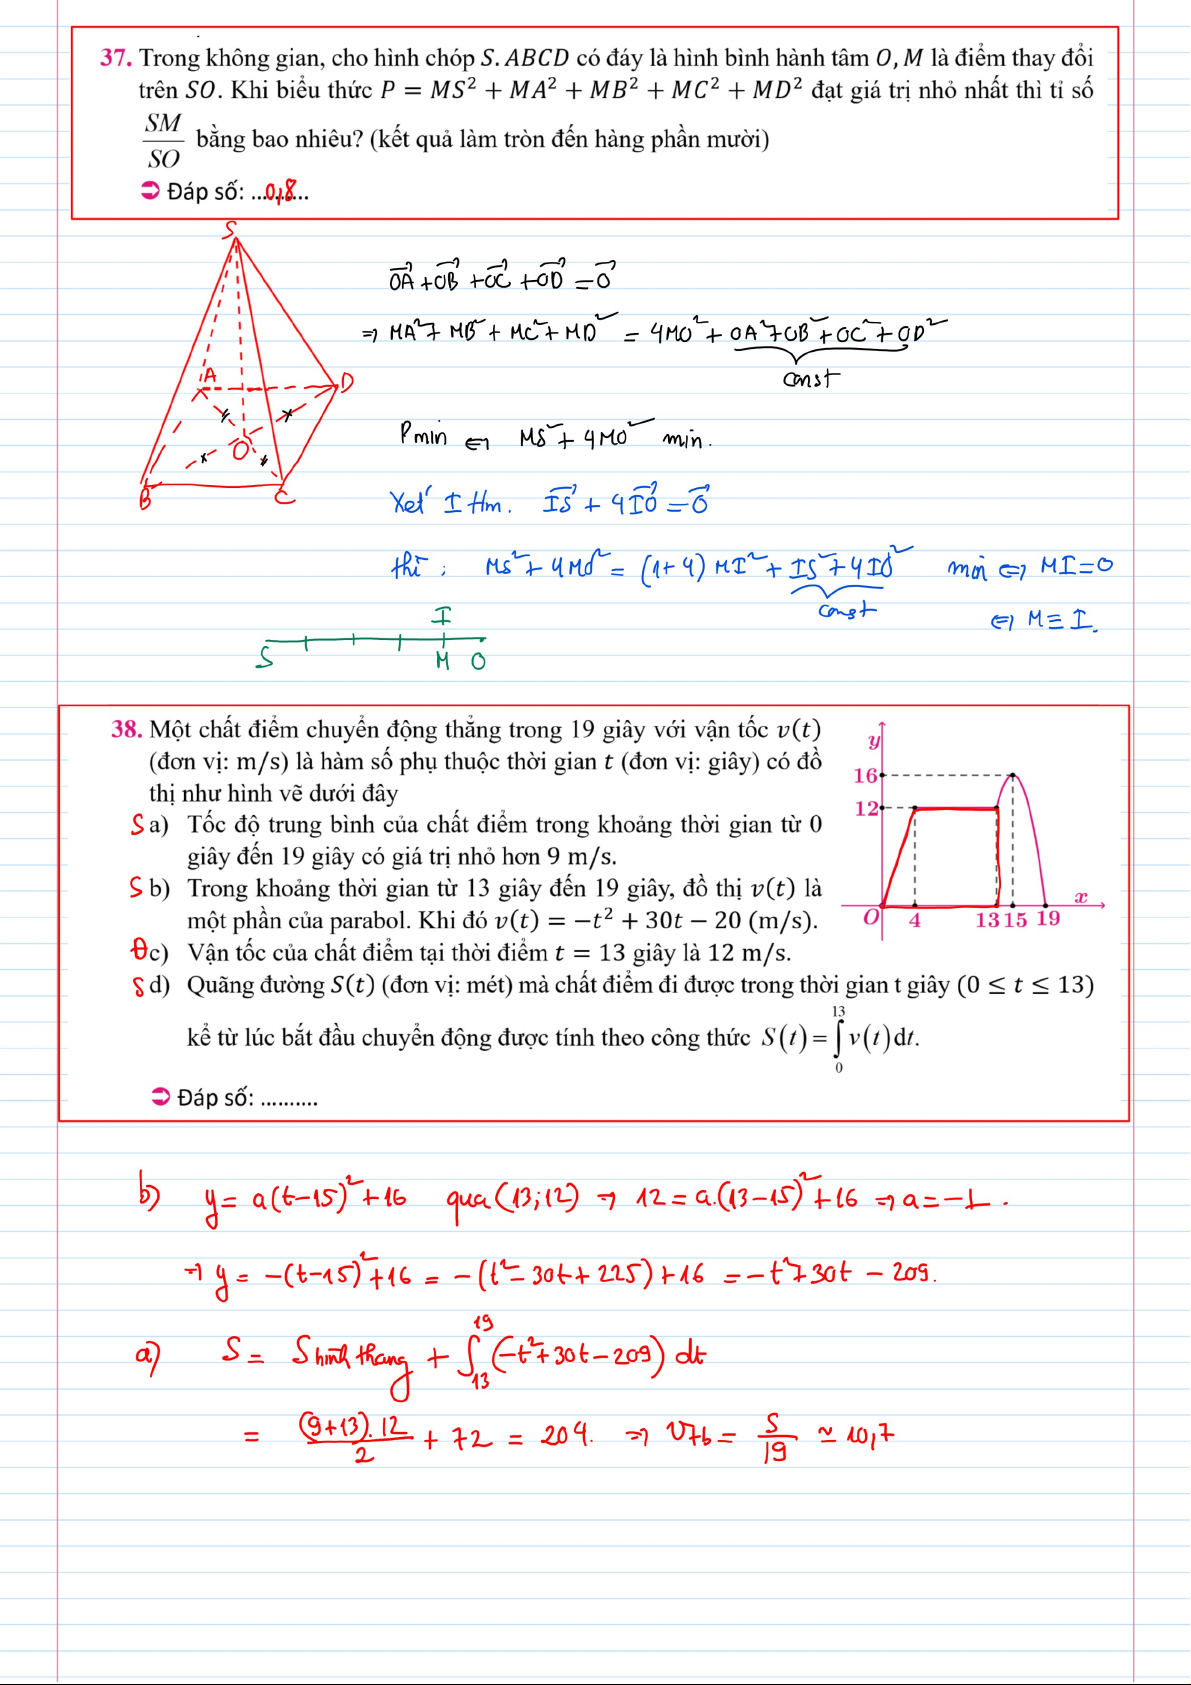 37. Trong không gian, cho hình chóp S.ABCD có đáy là hình bình hành tâm O, M là điểm thay đổi
trên SO. Khi biểu thức P = MS² + MA² + MB² + MC² + MD² đạt giá trị nhỏ nhất thì tỉ số
SM/SO bằng bao nhiêu? (kết quả làm tròn đến hàng phần mười)
➲ Đáp số: ...0,8...
S
A
D
O
B
C
OA⃗ + OB⃗ + OC⃗ + OD⃗ = O⃗
⇒ MA² + MB² + MC² + MD² = 4MO² + OA² + OB² + OC² + OD²
const
Pmin ⇔ MS² + 4MO² min.
Xét I t/m. IS⃗ + 4IO⃗ = O⃗
thì : MS² + 4MO² = (1+4) MI² + IS² + 4IO² min ⇔ MI = O
const
⇔ M ≡ I.
I
S M O
38. Một chất điểm chuyển động thẳng trong 19 giây với vận tốc v(t)
(đơn vị: m/s) là hàm số phụ thuộc thời gian t (đơn vị: giây) có đồ
thị như hình vẽ dưới đây
S a) Tốc độ trung bình của chất điểm trong khoảng thời gian từ 0
giây đến 19 giây có giá trị nhỏ hơn 9 m/s.
S b) Trong khoảng thời gian từ 13 giây đến 19 giây, đồ thị v(t) là
một phần của parabol. Khi đó v(t) = −t² + 30t − 20 (m/s).
Đ c) Vận tốc của chất điểm tại thời điểm t = 13 giây là 12 m/s.
S d) Quãng đường S(t) (đơn vị: mét) mà chất điểm đi được trong thời gian t giây (0 ≤ t ≤ 13)
kể từ lúc bắt đầu chuyển động được tính theo công thức S(t) = ∫₀¹³ v(t)dt.
➲ Đáp số: ..........
y
16
12
x
O 4 13 15 19
b) y = a(t−15)² + 16 qua (13;12) ⇒ 12 = a.(13−15)² + 16 ⇒ a = −1.
⇒ y = −(t−15)² + 16 = −(t² − 30t + 225) + 16 = −t² + 30t − 209.
a) S = S hình thang + ∫₁₃¹⁹ (−t² + 30t − 209) dt
= (9+13).12/2 + 72 = 204. ⇒ Vtb = S/19 ≃ 10,7